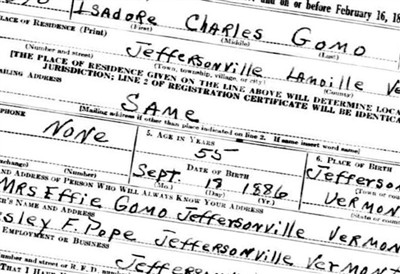 and on or before February 16, 18
ISADORE CHARLES GOMO
OF RESIDENCE (Print) (First) (Middle) (Last)
JEFFERSONVILLE LAMOILLE VE
(Number and street) (Town, township, village, or city) (County)
[THE PLACE OF RESIDENCE GIVEN ON THE LINE ABOVE WILL DETERMINE LOCA
JURISDICTION; LINE 2 OF REGISTRATION CERTIFICATE WILL BE IDENTICA
MAILING ADDRESS
SAME
[Mailing address if other than place indicated on line 2. If same insert word same]
PHONE
NONE
5. AGE IN YEARS
55
DATE OF BIRTH
Sept. 19 1886
(Mo.) (Day) (Yr.)
6. PLACE OF BIRTH
JEFFERSON
(Town or
VERMON
(State or
(Number)
AND ADDRESS OF PERSON WHO WILL ALWAYS KNOW YOUR ADDRESS
MRS EFFIE GOMO JEFFERSONVILLE VERMO
ER'S NAME AND ADDRESS
ESLEY F. POPE JEFFERSONVILLE VERMONT
EMPLOYMENT OR BUSINESS
JEFFERS
(Number and street or R. F. D. number)
THAT I HAVE